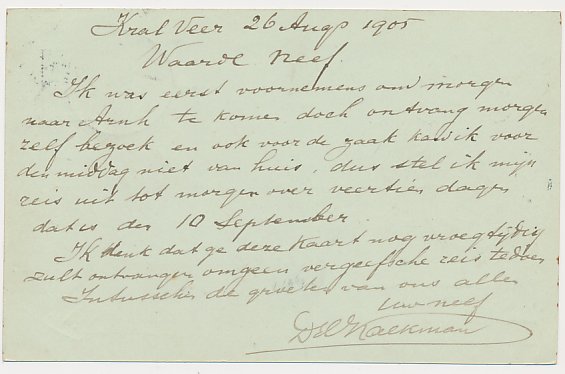 Kral Veer 26 Augs 1905
Waarde Neef.
Ik was eerst voornemens om morgen
naar Arnh te komen doch ontvang morgen
zelf bezoek en ook voor de zaak kan ik voor
den middag niet van huis, dus stel ik mijn
reis uit tot morgen over veertien dagen
dat is den 10 September
Ik denk dat ge deze kaart nog vroegtijdig
zult ontvangen om geen vergeefsche reis te doen
Intusschen de groeten van ons allen
uw neef